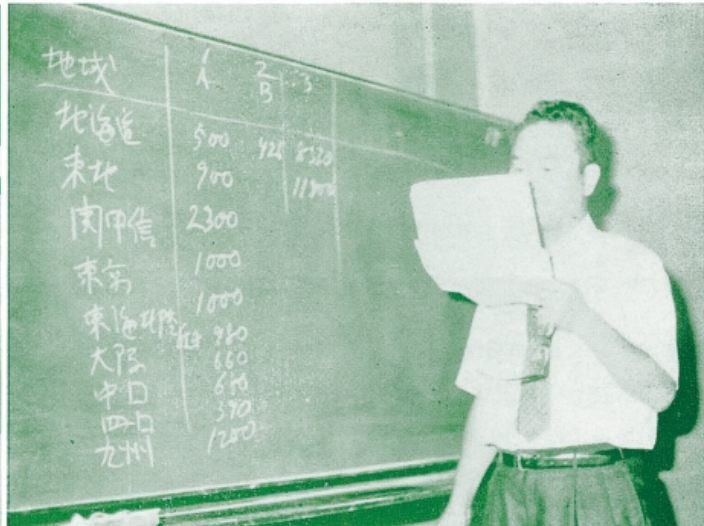 地域 A 2/B 3
北海道 500 426 8320
東北 900 11800
関甲信 2300
東京 1000
東海北陸 1000
980
大阪 660
中口 680
四口 390
九州 1200